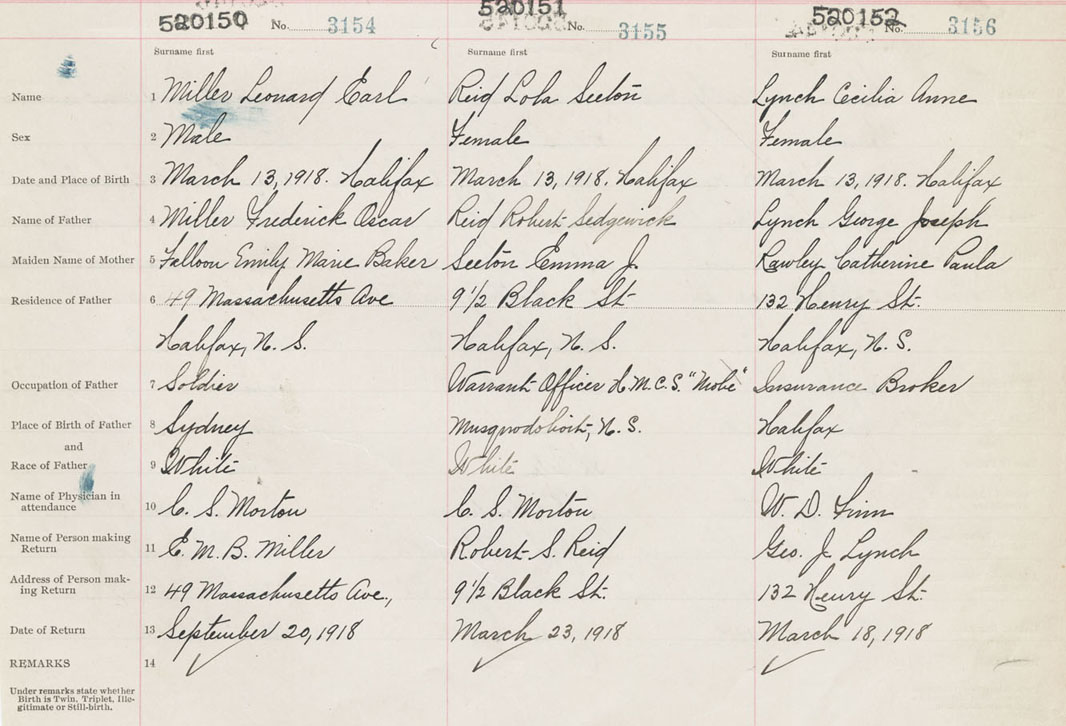 520150 No. 3154 520151 No. 3155 520152 No. 3156
Surname first Surname first Surname first
Name 1 Miller Leonard Earl Reid Lola Seeton Lynch Cecilia Anne
Sex 2 Male Female Female
Date and Place of Birth 3 March 13, 1918. Halifax March 13, 1918. Halifax March 13, 1918. Halifax
Name of Father 4 Miller Frederick Oscar Reid Robert Sedgewick Lynch George Joseph
Maiden Name of Mother 5 Falloon Emily Marie Baker Seeton Emma J. Rawley Catherine Paula
Residence of Father 6 49 Massachusetts Ave 9 1/2 Black St. 132 Henry St.
Halifax, N. S. Halifax, N. S. Halifax, N. S.
Occupation of Father 7 Soldier Warrant Officer H.M.C.S. "Niobe" Insurance Broker
Place of Birth of Father 8 Sydney Musquodoboit, N. S. Halifax
and
Race of Father 9 White White White
Name of Physician in
attendance 10 C. S. Morton C. S. Morton W. D. Finn
Name of Person making
Return 11 E. M. B. Miller Robert S. Reid Geo. J. Lynch
Address of Person mak-
ing Return 12 49 Massachusetts Ave., 9 1/2 Black St. 132 Henry St.
Date of Return 13 September 20, 1918 March 23, 1918 March 18, 1918
REMARKS 14
Under remarks state whether
Birth is Twin, Triplet, Ille-
gitimate or Still-birth.